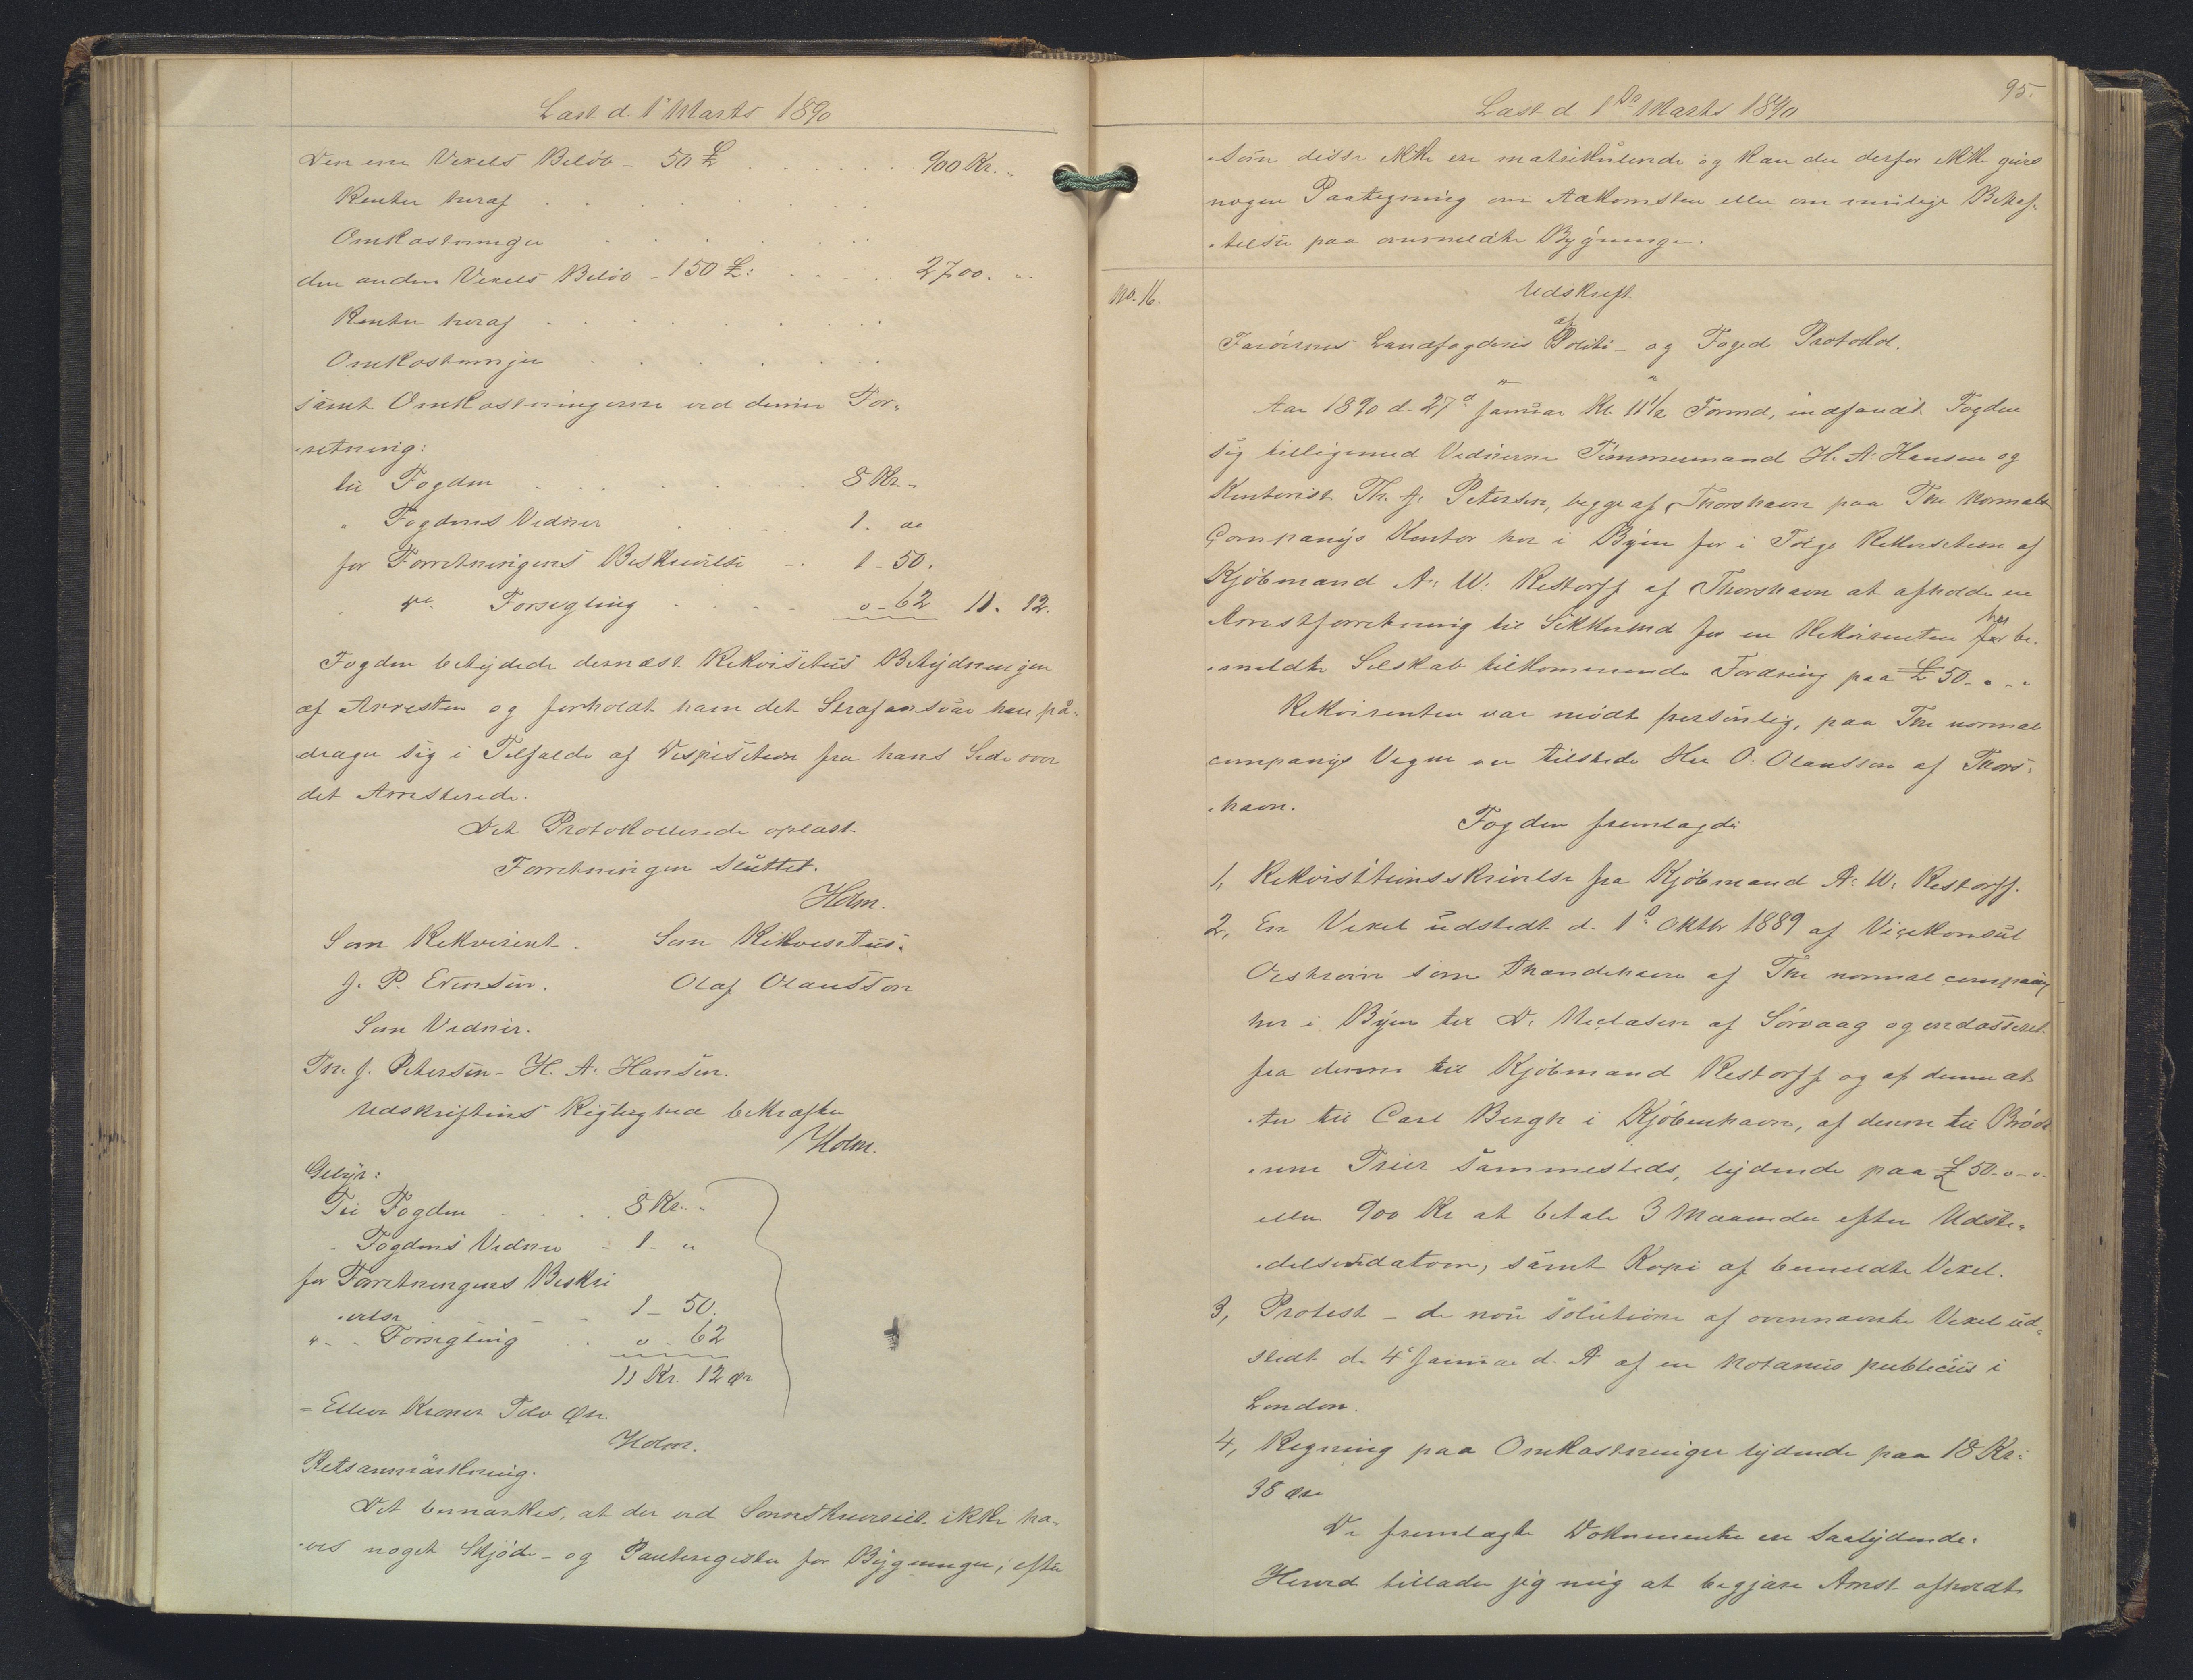 Læst d. 1' Marts 1890
Den ene Vexels Beløb - 50 £ . . . . . 900 Kr. "
Renter heraf . . . . . . . .
Omkostninger . . . . . .
den anden Vexels Beløb - 150 £: . . . . 2700. "
Renter heraf . . . . . . . .
Omkostninger . . . . . .
samt Omkostningerne ved denne For-
-retning:
til Fogden . . . . . . . 8 Kr. -
" Fogdens Vidner . . . . 1. "
for Forretningens Beskrivelse - . 1 - 50.
" do Forsegling . . . . 0 - 62 11. 12.
Fogden betydede dernæst Rekvisitus Betydningen
af Arresten og forholdt ham det Strafansvar han på-
drager sig i Tilfælde af Disposition fra hans Side over
det Arresterede.
Det Protokollerede oplæst.
Forretningen sluttet.
Holm.
Som Rekvirent. Som Rekvisitus.
J. P. Evensen. Olaf Olausson
Som Vidner.
Th. J. Petersen - H. A. Hansen.
Udskriftens Rigtighed bekræfter
Holm.
Gebyr:
Til Fogden . . . 8 Kr. -
" Fogdens Vidner - 1. "
for Forretningens Beskri
-velse - - 1 - 50.
" - . Forsegling . 0 . 62
11 Kr. 12 Ør
= Elleve Kroner Tolv Øre.
Holm.
Retsanmærkning.
Det bemærkes, at der ved Sorenskriveriet ikke ha-
-ves noget Skjøde- og Panteregister for Bygninger, efter
95.
Læst d 1ste Marts 1890
-som disse ikke ere matrikulerede og kan der derfor ikke gives
nogen Paategning om Adkomsten eller om mulige Behæf-
-telser paa ommeldte Bygninger.
No. 16.
Udskrift
af
Færøernes Landfogderis Politi- og Foged Protokol.
Aar 1890 d. 27d Januar Kl. 11 1/2 Formd, indfandt Fogden
sig tilligemed Vidnerne Tømmermand H. A. Hansen og
Kontorist Th. J. Petersen, begge af Thorshavn paa The Normal
Companys Kontor her i Byen for i Følge Rekvisition af
Kjøbmand A. W. Restorff af Thorshavn at afholde en
Arrestforretning til Sikkerhed for en Rekvirenten hos for be-
-meldte Selskab tilkommende Fordring paa £ 50 - " - "
Rekvirenten var mødt personlig, paa The normal
companys Vegne var tilstede Hr O. Olausson af Thors-
-havn.
Fogden fremlagde
1, Rekvisitionsskrivelse fra Kjøbmand A. W. Restorff.
2, En Vexel udstedt d. 1d Oktbr 1889 af Vicekonsul
som Ihændehaver af The normal company
her i Byen til D. Niclasen af Sørvaag og endosseret
fra denne til Kjøbmand Restorff og af denne at-
-ter til Carl Bergh i Kjøbenhavn, af denne til Brød-
-rene Trier sammesteds, lydende paa £ 50 - 0 - 0
eller 900 Kr at betale 3 Maaneder efter Udste-
-delsesdatoen, samt Kopi af bemeldte Vexel.
3, Protest - de non solutione af ovennævnte Vexel ud-
stedt d. 4' Januar d. A af en Notarius publicus i
London.
4, Regning paa Omkostninger lydende paa 18 Kr.
38 Øre
De fremlagte Dokumenter er saalydende:
Herved tillader jeg mig at begjære Arrest afholdt